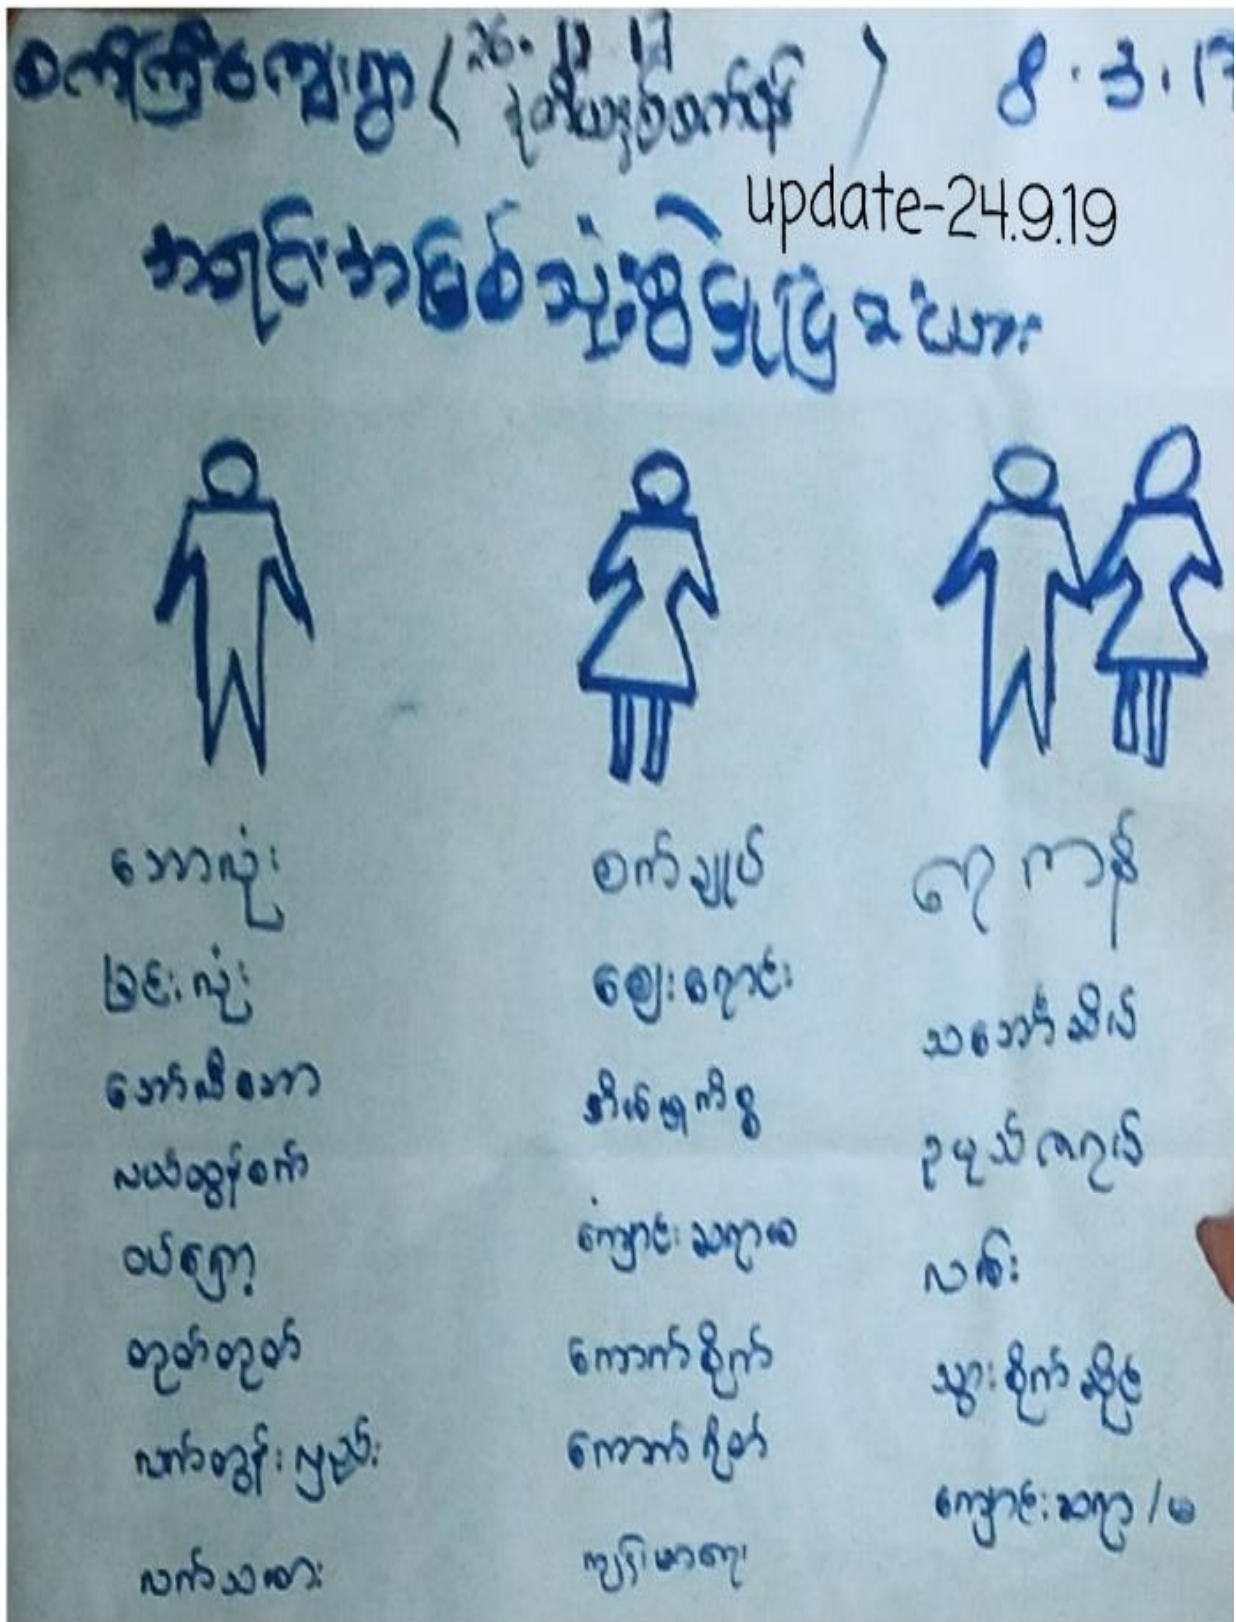 စကီကြီးကျေးရွာ ( 26.12.17 ဒုတိယနှစ်ဝက်ပြန် ) 8.3.17
update-24.9.19
အရင်းအမြစ်သုံးစွဲမှုပြ
ဘောလုံး
ခြင်းလုံး
ဘော်လီဘော
လယ်ထွန်စက်
ဝပ်ရှော့
ထုတ်ထုတ်
လက်တွန်းလှည်း
လက်သမား
စက်ချုပ်
ဈေးရောင်း
အိမ်မှုကိစ္စ
ကျောင်းဆရာမ
ကောက်စိုက်
ကောက်ရိတ်
ကျန်းမာရေး
ရေကန်
သဘော်ဆိပ်
ဥပုသ်ဇရပ်
လမ်း
သွားစိုက်ဆိုင်
ကျောင်းဆရာ/မ